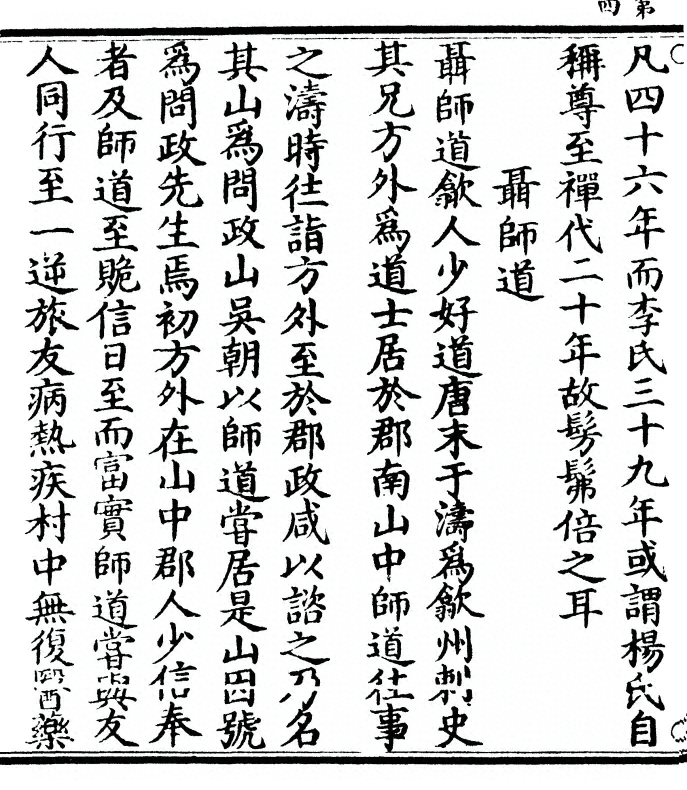 第
四
凡四十六年而李氏三十九年或謂楊氏自
稱尊至禪代二十年故髣髴倍之耳
聶師道
聶師道歙人少好道唐末于濤爲歙州刺史
其兄方外爲道士居於郡南山中師道往事
之濤時往詣方外至於郡政咸以諮之乃名
其山爲問政山吳朝以師道嘗居是山因號
爲問政先生焉初方外在山中郡人少信奉
者及師道至貺信日至而富實師道嘗與友
人同行至一逆旅友病熱疾村中無復醫藥